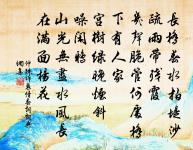 長橋春水拍堤沙
疏雨帶殘霞
幾聲脆管何處橋
下有人家
宮樹綠晚煙斜
噪閑鴉
山光無盡水風長
在滿面楊花